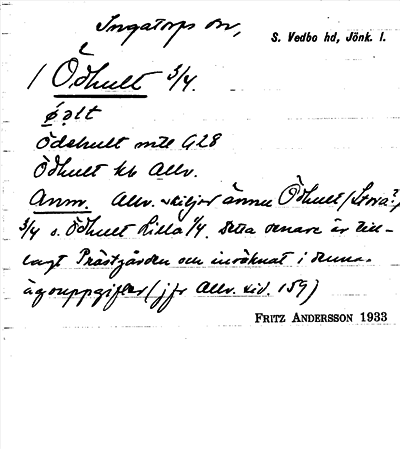 Ingatorps sn,
S. Vedbo hd, Jönk. l.
1 Ödhult 3/4.
Ödshult mtl G28
Ödhult kb Allv.
Anm. Allv. skiljer ännu Ödhult (Stora?)
3/4 o. Ödhult Lilla 1/4. Detta senare är till-
lagt Prästgården och inräknat i denna
ägouppgifter (jfr Allv. sid. 159)
FRITZ ANDERSSON 1933